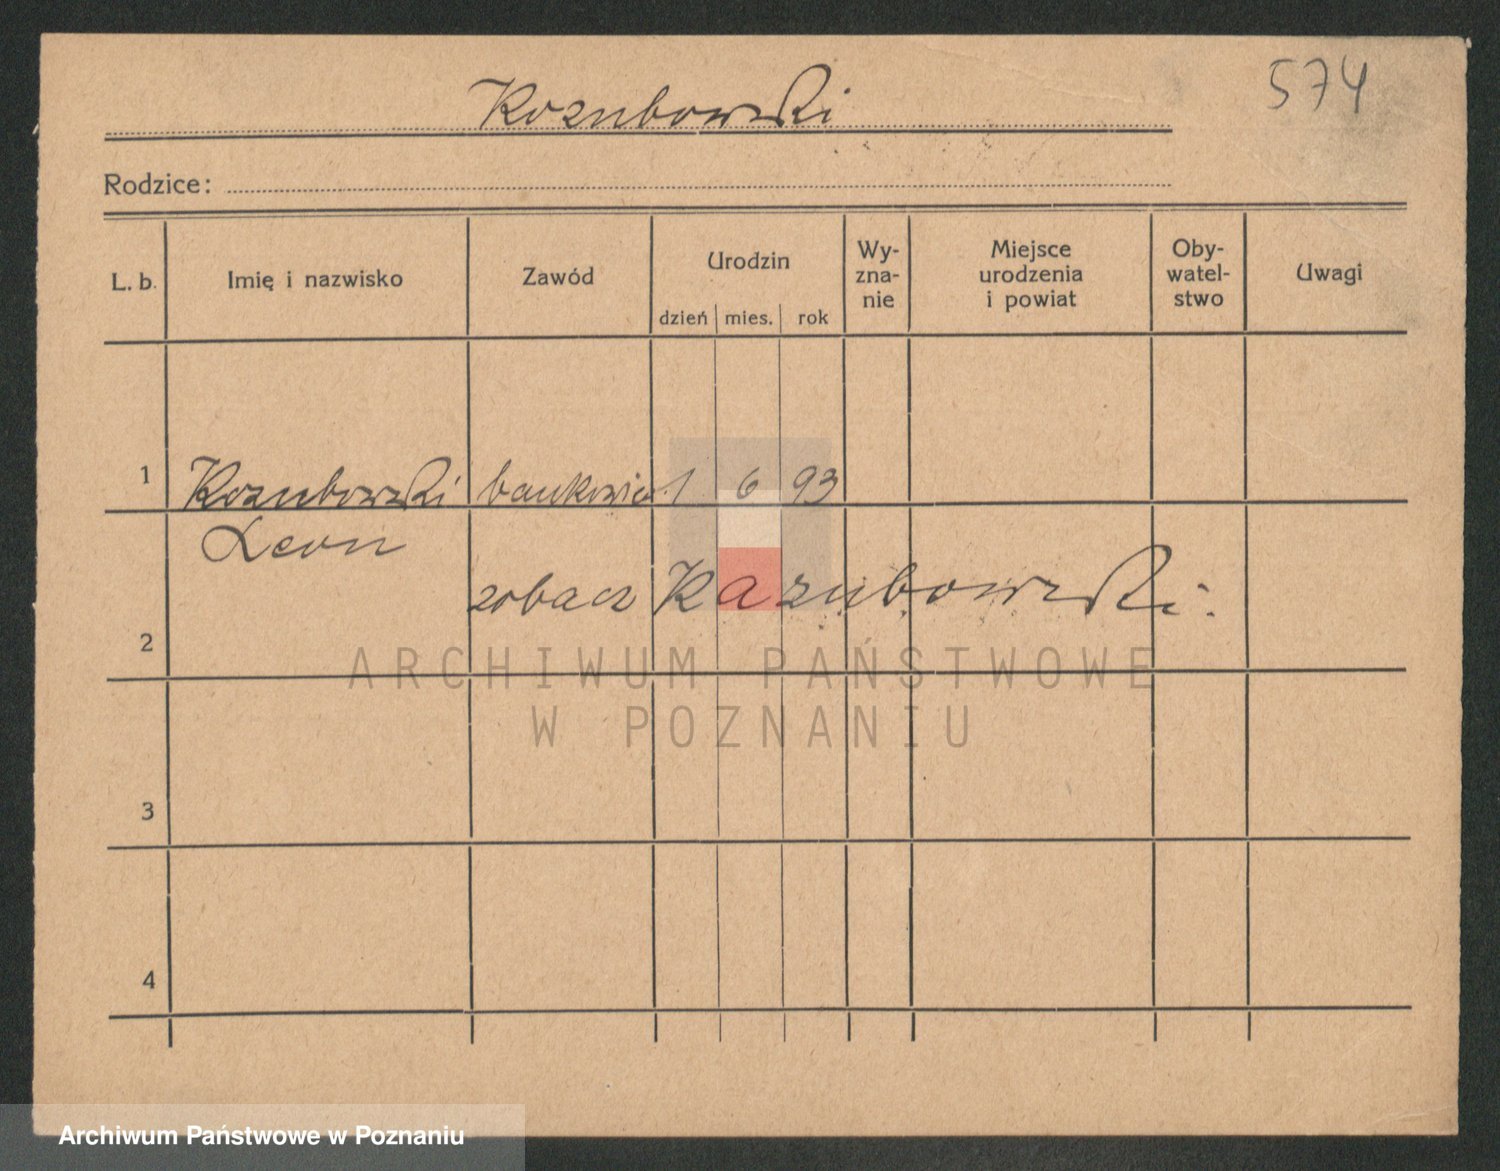 574
Kozubowski
Rodzice:
L. b. Imię i nazwisko Zawód Urodzin dzień mies. rok Wy-zna-nie Miejsce urodzenia i powiat Oby-watel-stwo Uwagi
1 Kozubowski bankowiec 1 6 93
Leon
zobacz Kazubowski.
2
ARCHIWUM PAŃSTWOWE
W POZNANIU
3
4
Archiwum Państwowe w Poznaniu